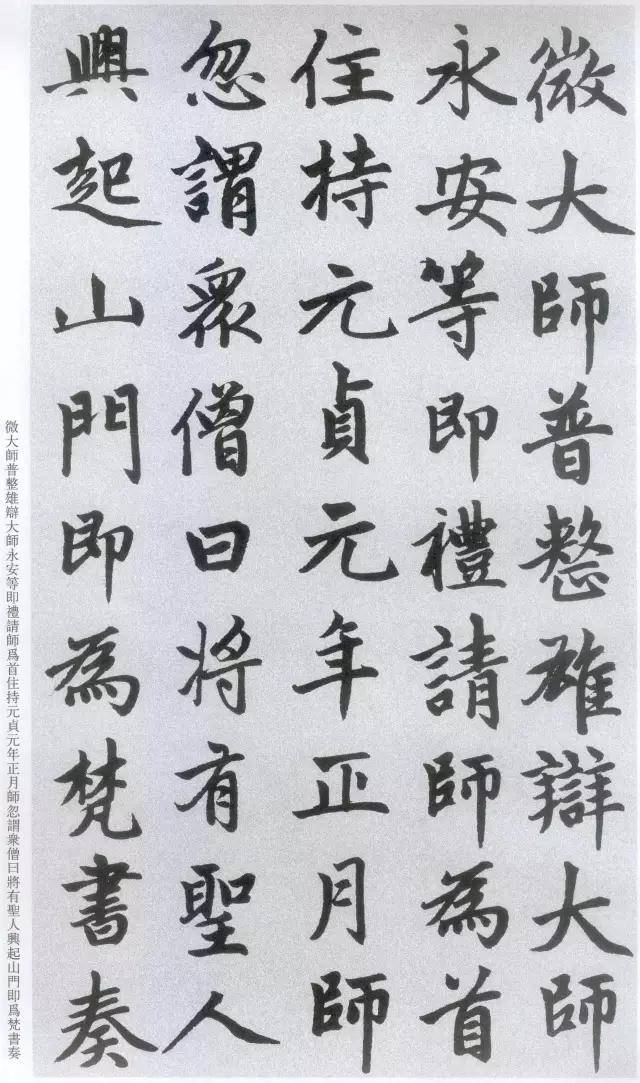 微大師普整雄辯大師
永安等即禮請師為首
住持元貞元年正月師
忽謂衆僧曰將有聖人
興起山門即為梵書奏
微大師普整雄辯大師永安等即禮請師爲首住持元貞元年正月師忽謂衆僧曰將有聖人興起山門即爲梵書奏